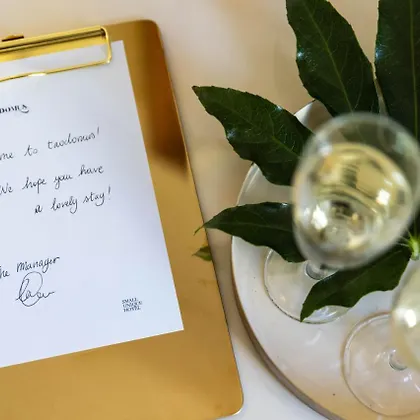 me to txodomus!
We hope you have
a lovely stay!
The Manager
SMALL
UNIQUE
HOTEL